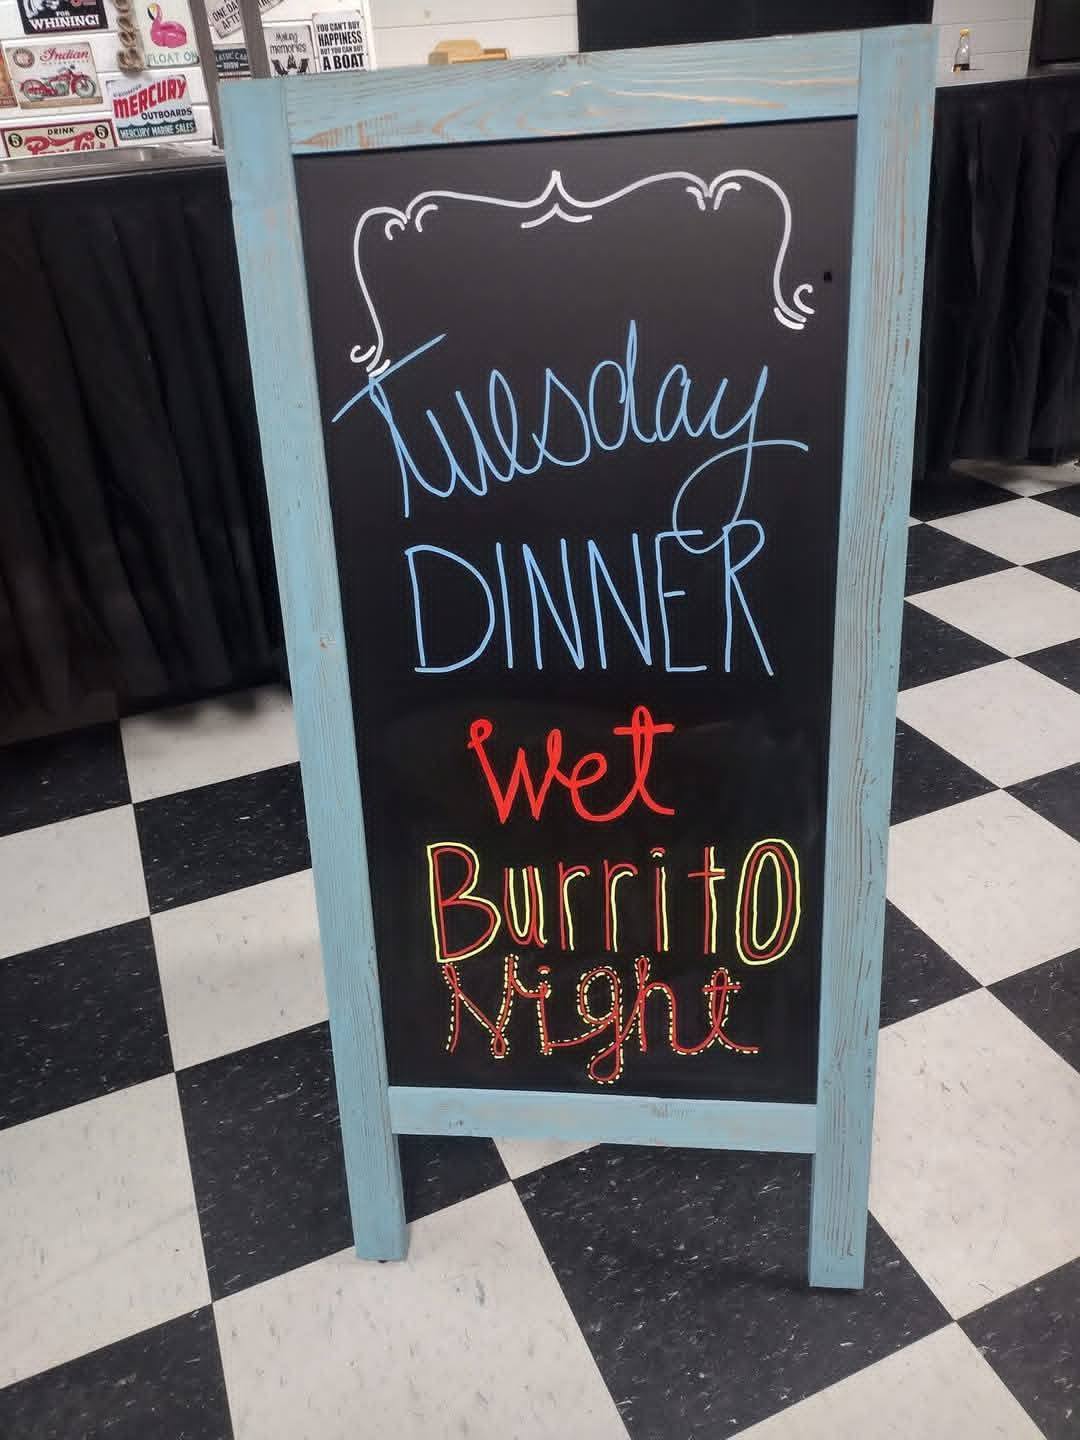 FOR
WHINING!
FLOAT ON
Indian
MERCURY
OUTBOARDS
MERCURY MARINE SALES
5
DRINK
5
ONE DAY
Making
memories
YOU CAN'T BUY
HAPPINESS
BUT YOU CAN BUY
A BOAT
Tuesday
DINNER
Wet
BurritO
Night